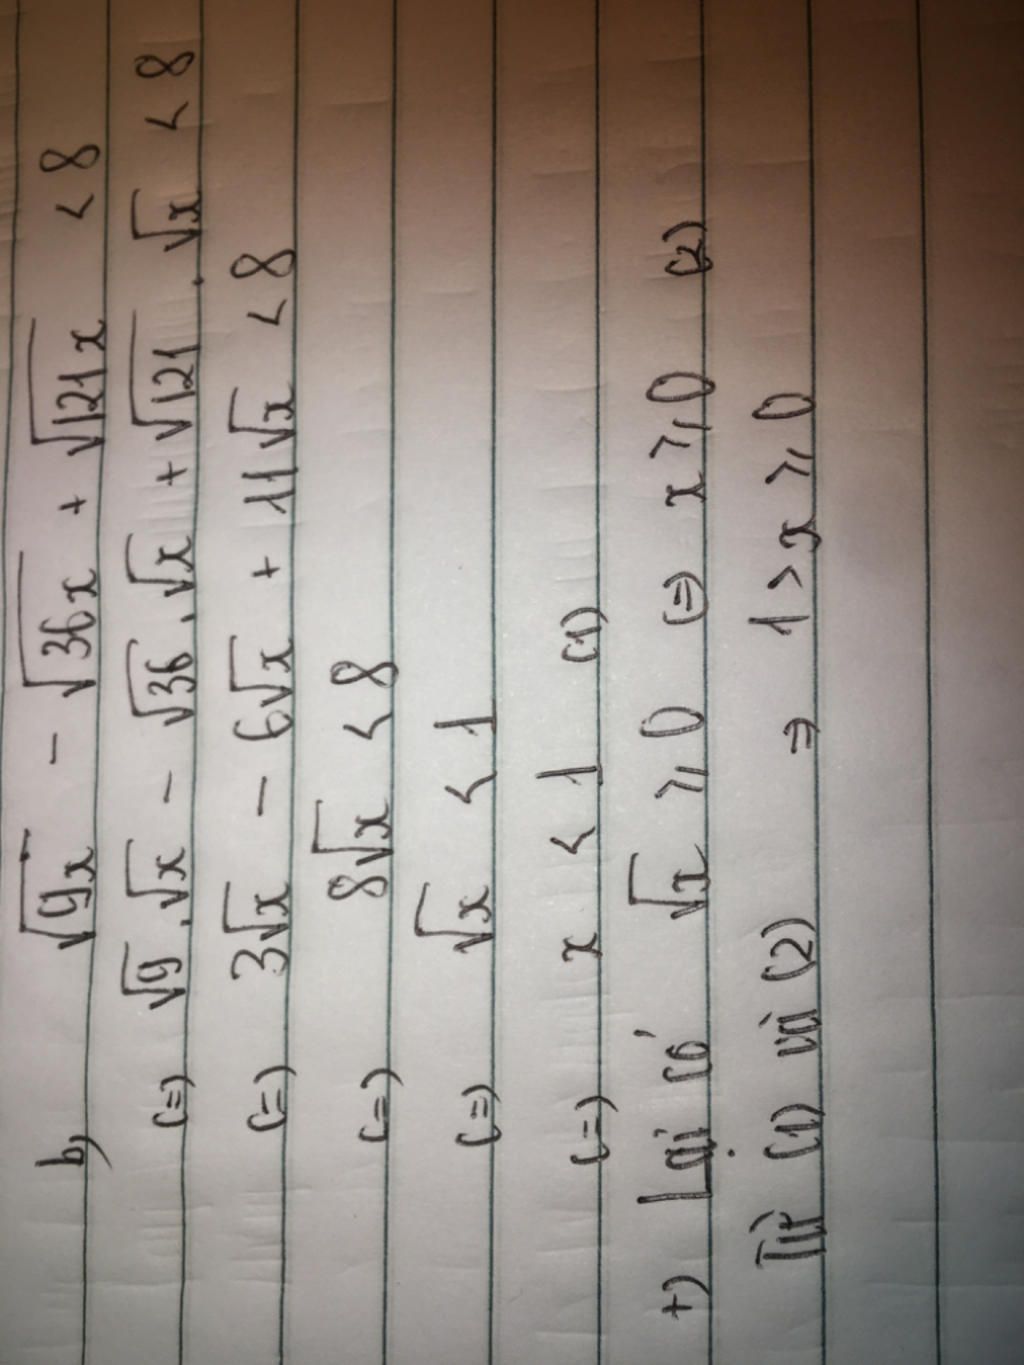 b) √9x - √36x + √121x < 8
(=) √9 . √x - √36 . √x + √121 . √x < 8
(=) 3√x - 6√x + 11√x < 8
(=) 8√x < 8
(=) √x < 1
(=) x < 1 (1)
+) Lại có √x ⩾ 0 (=) x ⩾ 0 (2)
Từ (1) và (2) => 1 > x ⩾ 0